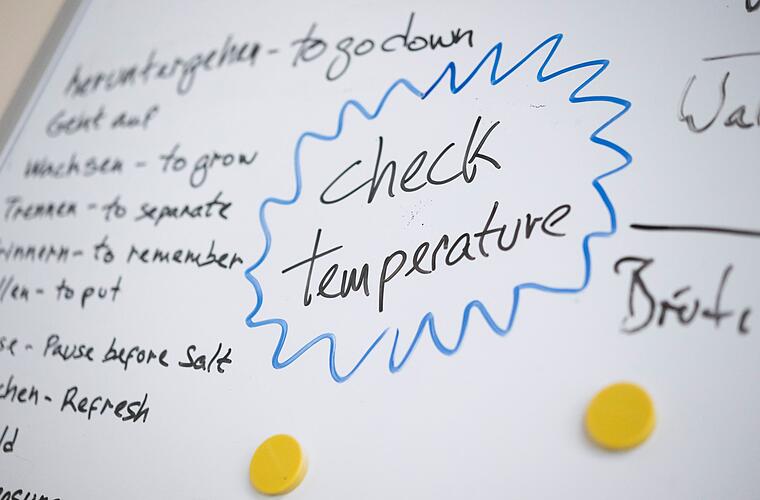 heruntergehen - to go down
Geht auf
Wachsen - to grow
Trennen - to separate
rinnern - to remember
llen - to put
se - Pause before Salt
chen - Refresh
ld
check
temperature
Wal